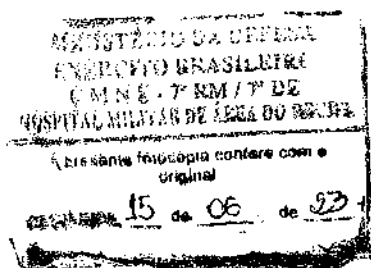 MINISTÉRIO DA DEFESA
EXÉRCITO BRASILEIRO
C M N E - 7ª RM / 7ª DE
HOSPITAL MILITAR DE ÁREA DO RECIFE
A presente fotocópia confere com o
original
15 de 06 de 23